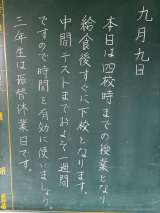 九月九日
本日は四校時までの授業となり
給食後すぐに下校となります。
中間テストまでおよそ一週間
ですので時間を有効に使いましょう。
三年生は振替休業日です。